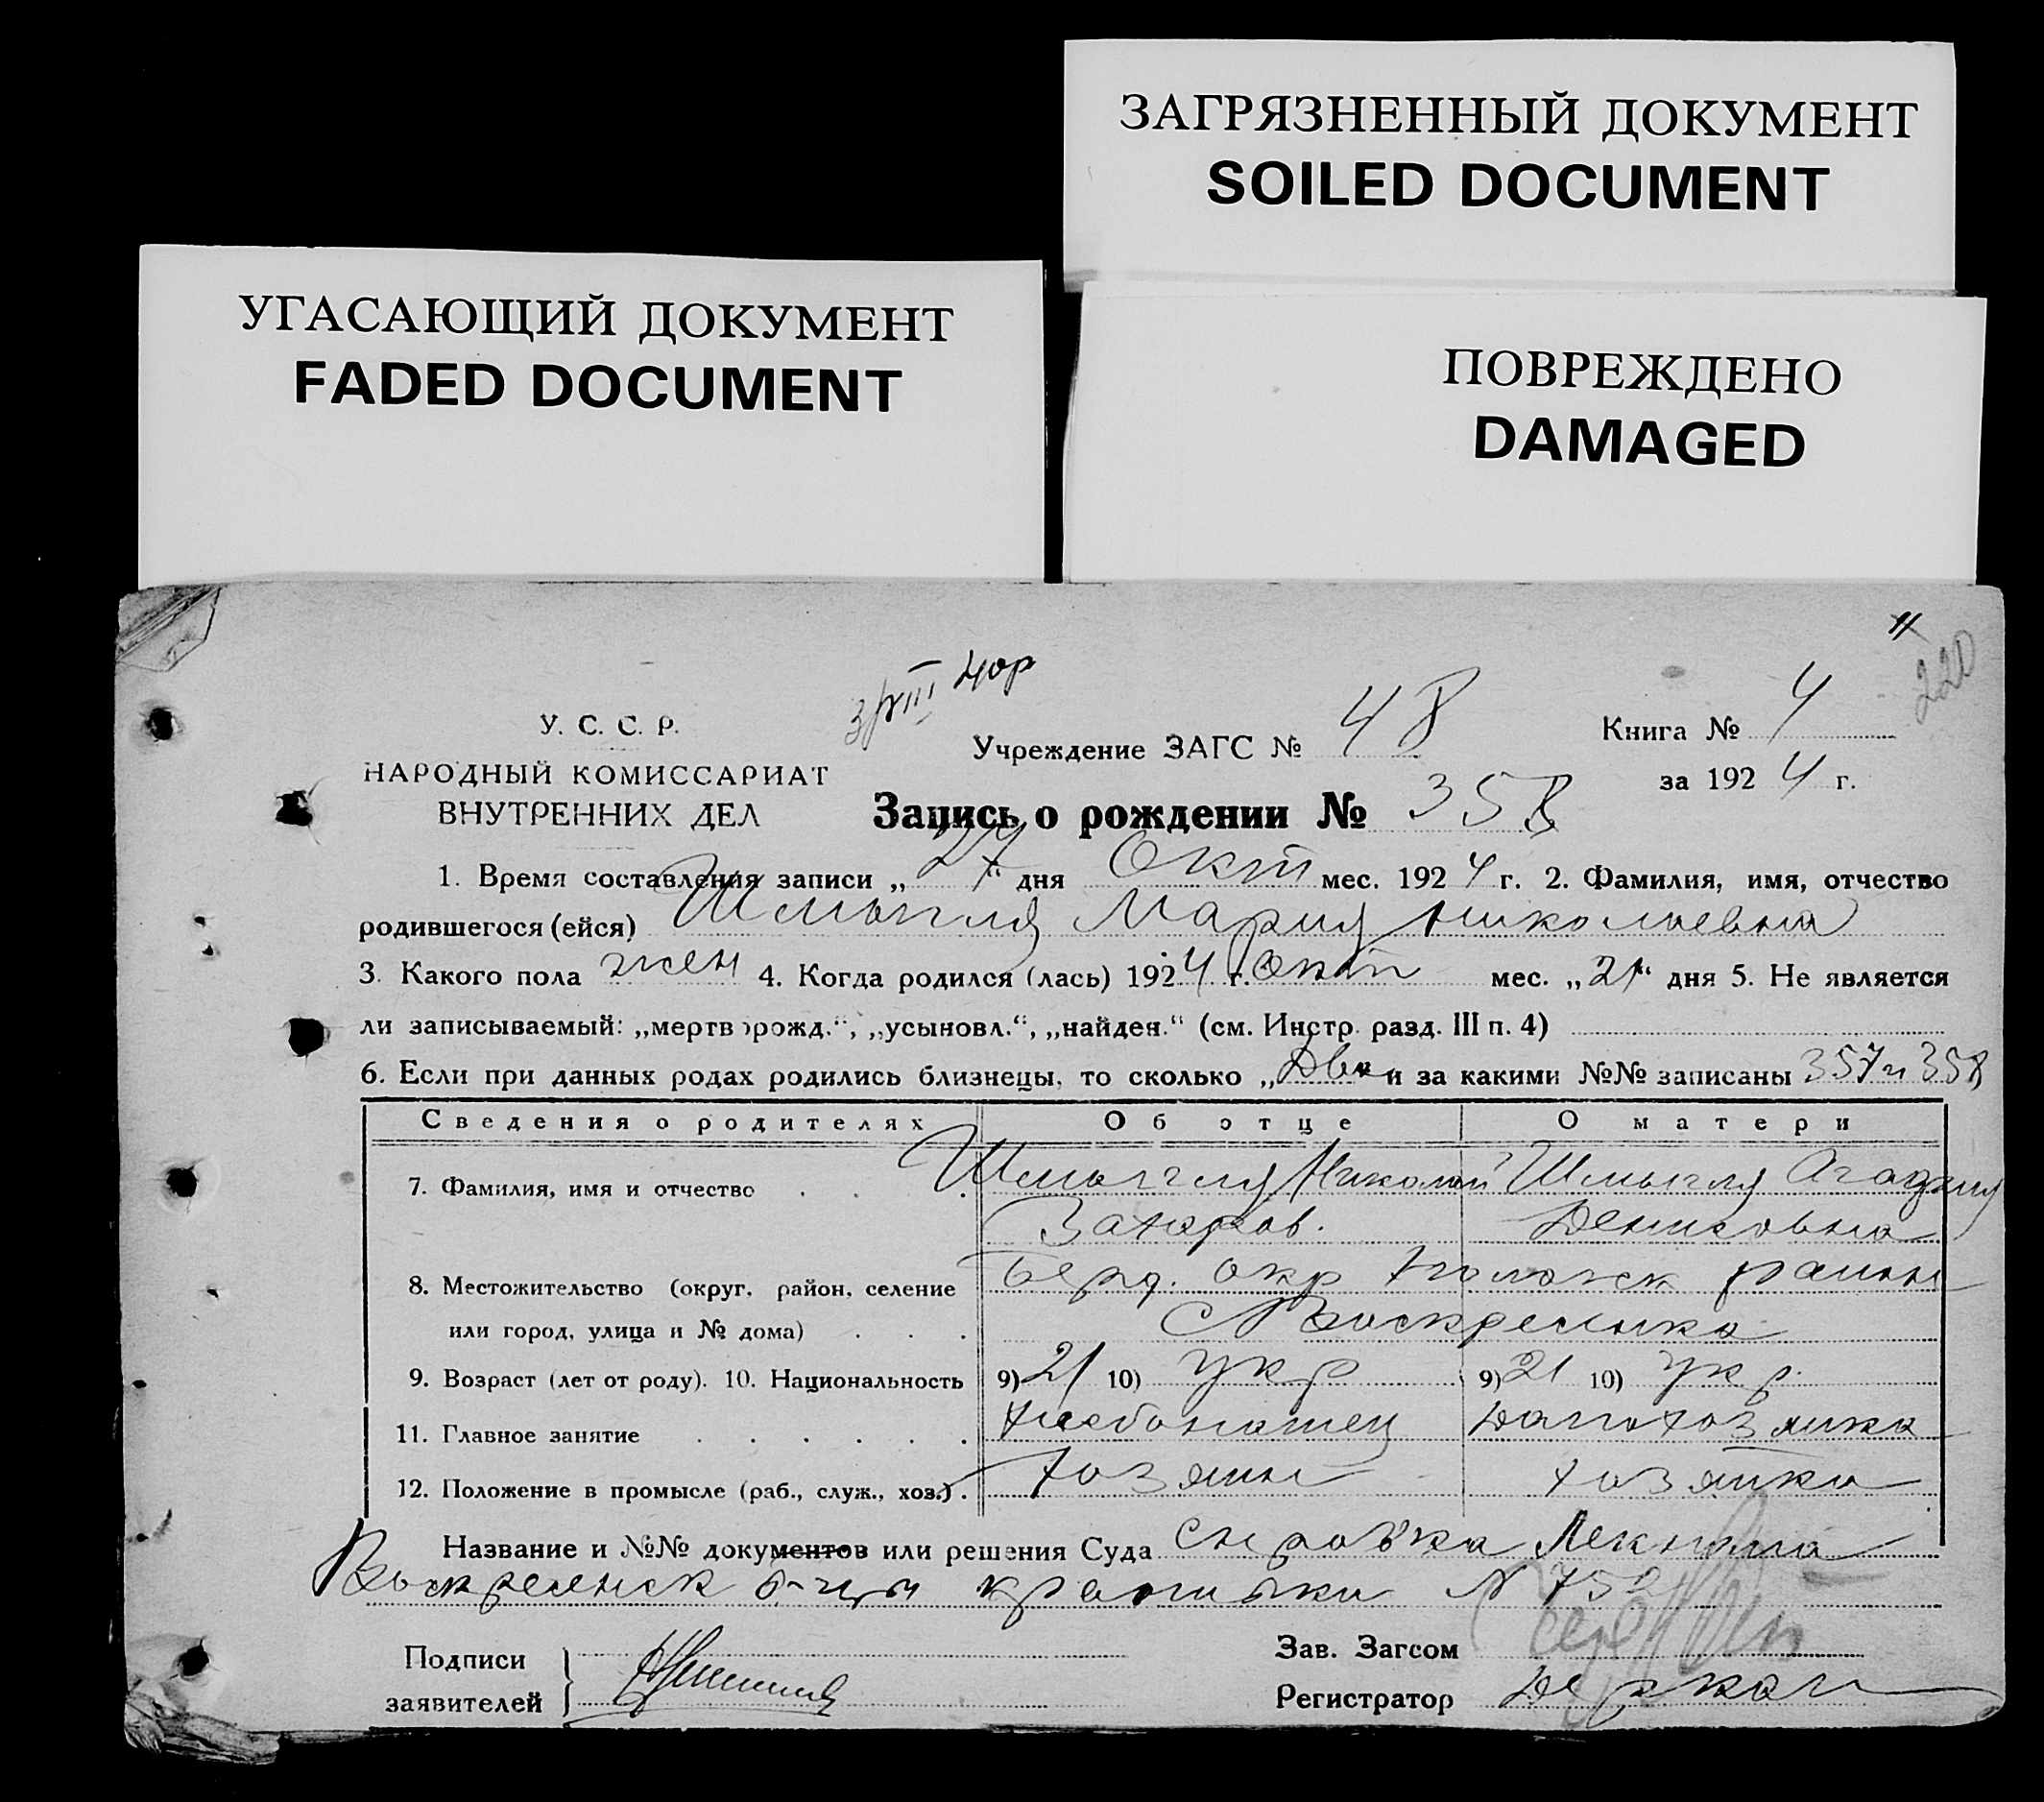 ЗАГРЯЗНЕННЫЙ ДОКУМЕНТ
SOILED DOCUMENT
УГАСАЮЩИЙ ДОКУМЕНТ
FADED DOCUMENT
ПОВРЕЖДЕНО
DAMAGED
220
У. С. С. Р.
НАРОДНЫЙ КОМИССАРИАТ
ВНУТРЕННИХ ДЕЛ
Учреждение ЗАГС № 48
Книга № 4
за 1924 г.
Запись о рождении № 358
1. Время составления записи „27“ дня Окт мес. 1924 г. 2. Фамилия, имя, отчество
родившегося (ейся) Шмыгля Мария Николаевна
3. Какого пола жен 4. Когда родился (лась) 1924 г. Окт мес. „21“ дня 5. Не является
ли записываемый: „мертворожд.“, „усыновл.“, „найден.“ (см. Инстр. разд. III п. 4)
6. Если при данных родах родились близнецы, то сколько „Двк“ и за какими №№ записаны 357 и 358
Сведения о родителях Об отце О матери
7. Фамилия, имя и отчество Шмыгля Николай Шмыгля Агафия
Захаров. Денисовна
8. Местожительство (округ, район, селение Берд. окр район
или город, улица и № дома) С Воскресенка
9. Возраст (лет от роду). 10. Национальность 9) 21 10) укр 9) 21 10) укр.
11. Главное занятие Хлебопашец Домохозяйка
12. Положение в промысле (раб., служ., хоз.) хозяин хозяйка
Название и №№ документов или решения Суда Справка
Воскресенск б-цы № 752
Подписи
заявителей
Зав. Загсом
Регистратор Деркач